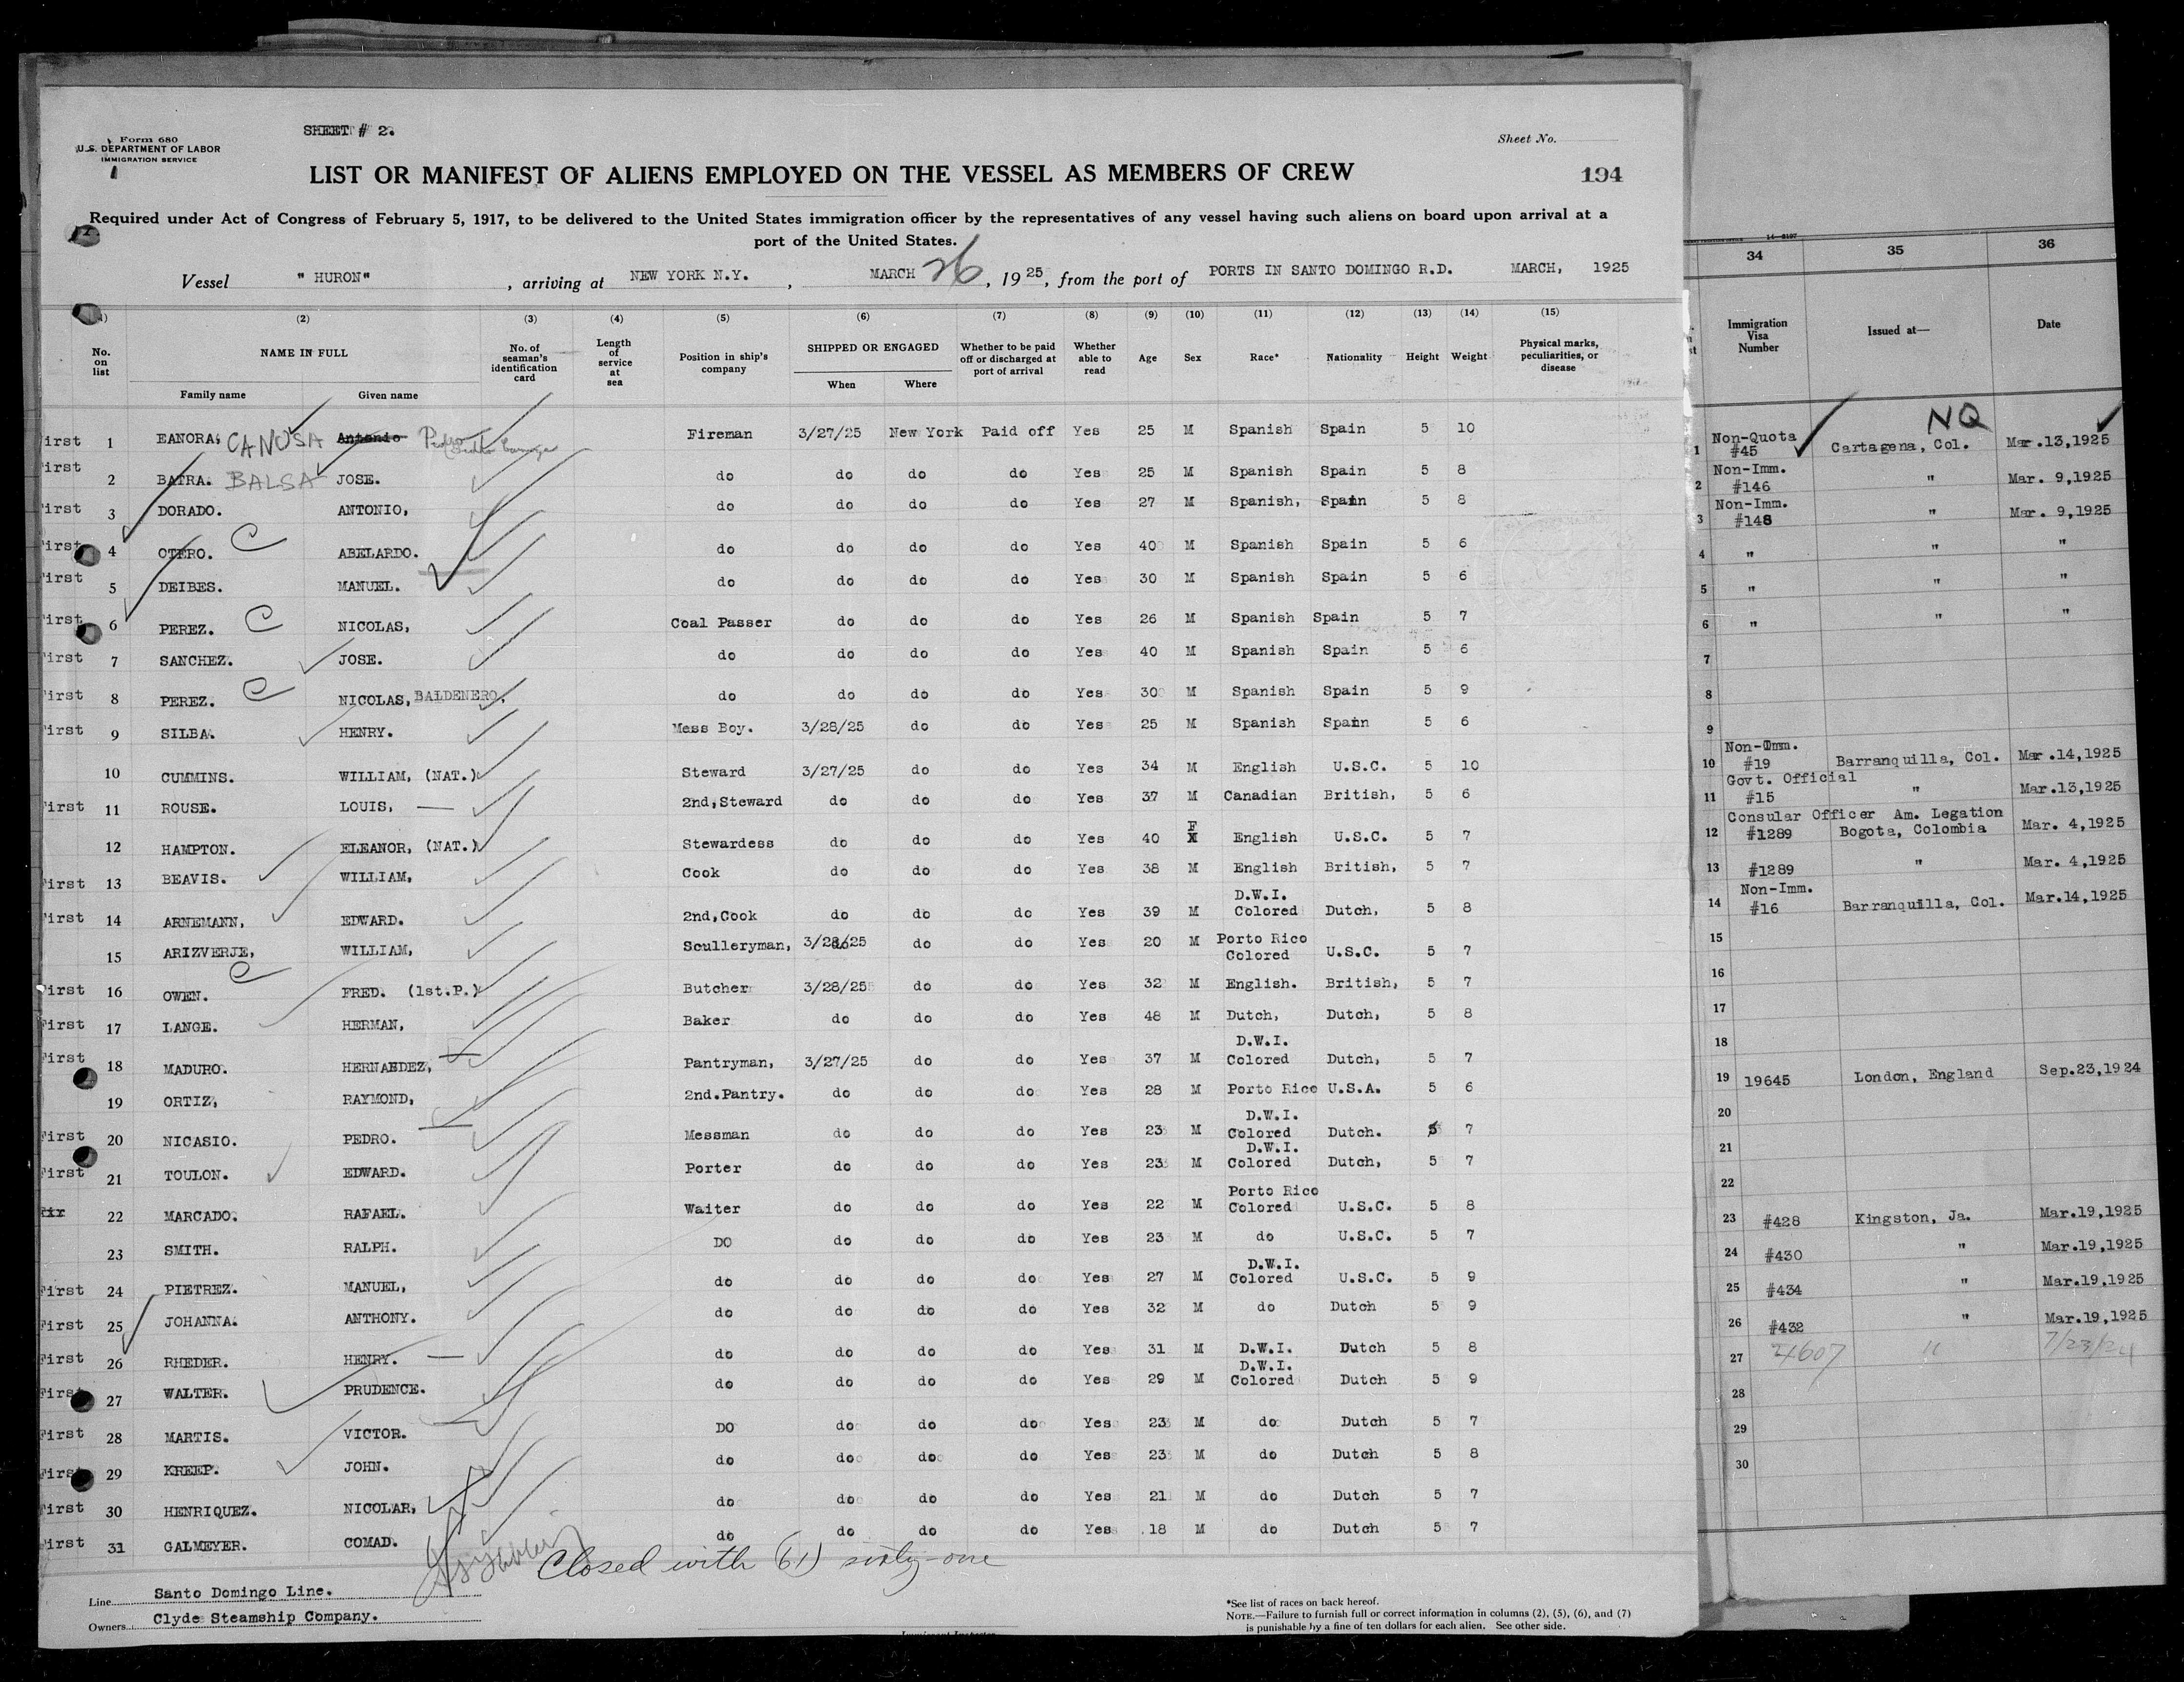 SHEET # 2.
Form 680
U.S. DEPARTMENT OF LABOR
IMMIGRATION SERVICE
Sheet No.
LIST OR MANIFEST OF ALIENS EMPLOYED ON THE VESSEL AS MEMBERS OF CREW
194
Required under Act of Congress of February 5, 1917, to be delivered to the United States immigration officer by the representatives of any vessel having such aliens on board upon arrival at a
port of the United States.
Vessel " HURON" , arriving at NEW YORK N.Y. , MARCH 26, 1925, from the port of PORTS IN SANTO DOMINGO R.D. MARCH, 1925
(2) (3) (4) (5) (6) (7) (8) (9) (10) (11) (12) (13) (14) (15)
No. on list
NAME IN FULL
Family name Given name
No. of seaman's identification card
Length of service at sea
Position in ship's company
SHIPPED OR ENGAGED
When Where
Whether to be paid off or discharged at port of arrival
Whether able to read
Age
Sex
Race*
Nationality
Height
Weight
Physical marks, peculiarities, or disease
First 1 EANORA. CANOSA Antonio Pedro Fireman 3/27/25 New York Paid off Yes 25 M Spanish Spain 5 10
First 2 BATRA. BALSA JOSE. do do do do Yes 25 M Spanish Spain 5 8
First 3 DORADO. ANTONIO, do do do do Yes 27 M Spanish, Spain 5 8
First 4 OTERO. C ABELARDO. do do do do Yes 40 M Spanish Spain 5 6
First 5 DEIBES. MANUEL. do do do do Yes 30 M Spanish Spain 5 6
First 6 PEREZ. C NICOLAS, Coal Passer do do do Yes 26 M Spanish Spain 5 7
First 7 SANCHEZ. JOSE. do do do do Yes 40 M Spanish Spain 5 6
First 8 PEREZ. C NICOLAS, BALDENERO. do do do do Yes 30 M Spanish Spain 5 9
First 9 SILBA. HENRY. Mess Boy. 3/28/25 do do Yes 25 M Spanish Spain 5 6
10 CUMMINS. WILLIAM, (NAT.) Steward 3/27/25 do do Yes 34 M English U.S.C. 5 10
First 11 ROUSE. LOUIS, 2nd,Steward do do do Yes 37 M Canadian British, 5 6
12 HAMPTON. ELEANOR, (NAT.) Stewardess do do do Yes 40 F English U.S.C. 5 7
First 13 BEAVIS. WILLIAM, Cook do do do Yes 38 M English British, 5 7
First 14 ARNEMANN, EDWARD. 2nd,Cook do do do Yes 39 M D.W.I. Colored Dutch, 5 8
15 ARIZVERJE, WILLIAM, Sculleryman, 3/28/25 do do Yes 20 M Porto Rico Colored U.S.C. 5 7
First 16 OWEN. C FRED. (1st.P.) Butcher 3/28/25 do do Yes 32 M English. British, 5 7
First 17 LANGE. HERMAN, Baker do do do Yes 48 M Dutch, Dutch, 5 8
First 18 MADURO. HERNAEDEZ, Pantryman, 3/27/25 do do Yes 37 M D.W.I. Colored Dutch, 5 7
19 ORTIZ, RAYMOND, 2nd.Pantry. do do do Yes 28 M Porto Rico U.S.A. 5 6
First 20 NICASIO. PEDRO. Messman do do do Yes 23 M D.W.I. Colored Dutch. 5 7
First 21 TOULON. EDWARD. Porter do do do Yes 23 M D.W.I. Colored Dutch, 5 7
22 MARCADO. RAFAEL. Waiter do do do Yes 22 M Porto Rico Colored U.S.C. 5 8
23 SMITH. RALPH. DO do do do Yes 23 M do U.S.C. 5 7
First 24 PIETREZ. MANUEL, do do do do Yes 27 M D.W.I. Colored U.S.C. 5 9
First 25 JOHANNA. ANTHONY. do do do do Yes 32 M do Dutch 5 9
First 26 RHEDER. HENRY. do do do do Yes 31 M D.W.I. Dutch 5 8
First 27 WALTER. PRUDENCE. do do do do Yes 29 M D.W.I. Colored Dutch 5 9
First 28 MARTIS. VICTOR. DO do do do Yes 23 M do Dutch 5 7
First 29 KREEP. JOHN. do do do do Yes 23 M do Dutch 5 8
First 30 HENRIQUEZ. NICOLAR, do do do do Yes 21 M do Dutch 5 7
First 31 GALMEYER. COMAD. do do do do Yes 18 M do Dutch 5 7
Closed with (61) sixty-one
Line Santo Domingo Line.
Owners Clyde Steamship Company.
*See list of races on back hereof.
NOTE.—Failure to furnish full or correct information in columns (2), (5), (6), and (7)
is punishable by a fine of ten dollars for each alien. See other side.
Immigrant Inspector
34 35 36
Immigration Visa Number
Issued at—
Date
NQ
1 Non-Quota #45 Cartagena, Col. Mar.13,1925
2 Non-Imm. #146 " Mar. 9,1925
3 Non-Imm. #148 " Mar. 9,1925
4 " " "
5 " " "
6 " " "
7
8
9
10 Non-Imm. #19 Barranquilla, Col. Mar.14,1925
11 Govt. Official #15 " Mar.13,1925
12 Consular Officer #1289 Am. Legation Bogota, Colombia Mar. 4,1925
13 #1289 " Mar. 4,1925
14 Non-Imm. #16 Barranquilla, Col. Mar.14,1925
15
16
17
18
19 19645 London, England Sep.23,1924
20
21
22
23 #428 Kingston, Ja. Mar.19,1925
24 #430 " Mar.19,1925
25 #434 " Mar.19,1925
26 #432 " Mar.19,1925
27 4607 " 7/23/24
28
29
30